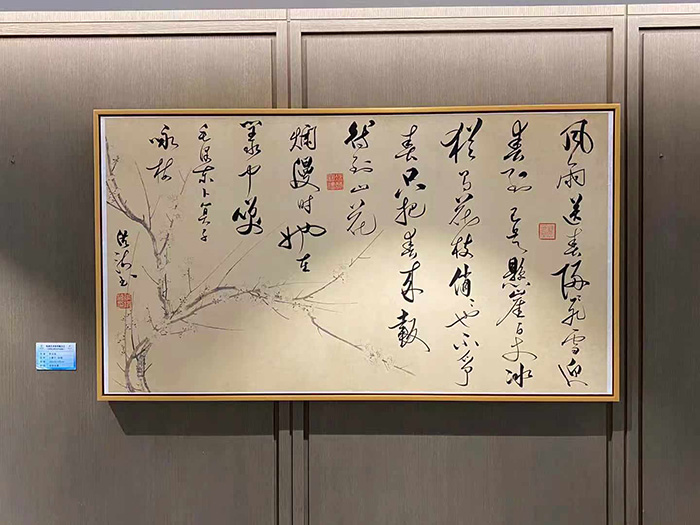 风雨送春归飞雪迎
春到已是懸崖百丈冰
犹有花枝俏〻也不争
春只把春来報
待到山花
烂漫时她在
叢中笑
毛泽东卜算子
咏梅